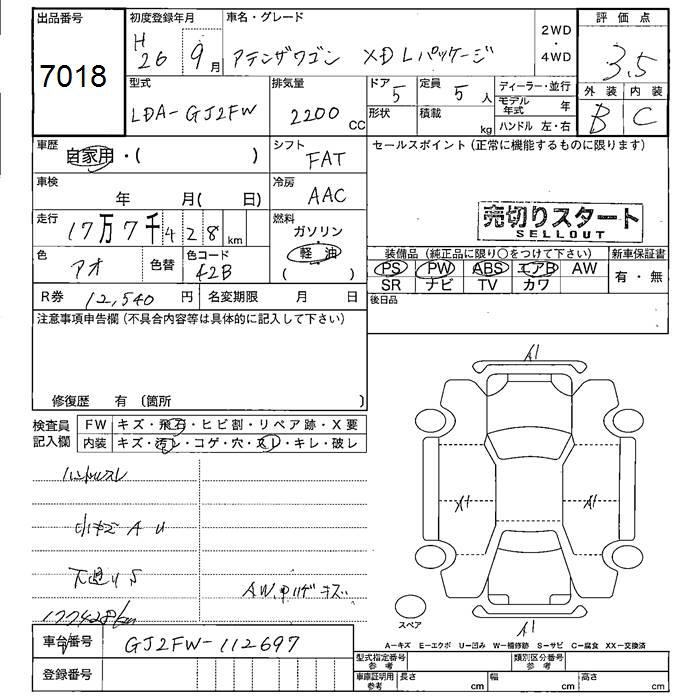 出品番号
7018
初度登録年月
H26 9月
車名・グレード
アテンザワゴン XD Lパッケージ
2WD
・
4WD
評価点
3.5
型式
LDA-GJ2FW
排気量
2200 CC
ドア
5
定員
5 人
形状
積載
kg
ディーラー・並行
モデル年式 年
ハンドル 左・右
外装
B
内装
C
車歴
自家用・( )
シフト
FAT
セールスポイント(正常に機能するものに限ります)
車検
年 月( 日)
冷房
AAC
売切りスタート
SELLOUT
走行
17万7千428 km
燃料
ガソリン
軽油
( )
色
アオ
色替
色コード
42B
装備品(純正品に限り○をつけて下さい)
新車保証書
PS PW ABS エアB AW
有・無
SR ナビ TV カワ
R券 12,540 円
名変期限 月 日
後日品
注意事項申告欄(不具合内容等は具体的に記入して下さい)
修復歴 有(箇所 )
検査員
記入欄
FW キズ・飛石・ヒビ割・リペア跡・X要
内装 キズ・汚レ・コゲ・穴・スレ・キレ・破レ
ハンドルスレ
小キズ A U
下廻りS
177428km
AW、キズ
A1
X1
A1
A1
スペア
車台番号
GJ2FW-112697
登録番号
A−キズ E−エクボ U−凹み W−補修跡 S−サビ C−腐食 XX−交換済
型式指定番号
参考
類別区分番号
参考
車庫証明用
参考
長さ cm
幅 cm
高さ cm